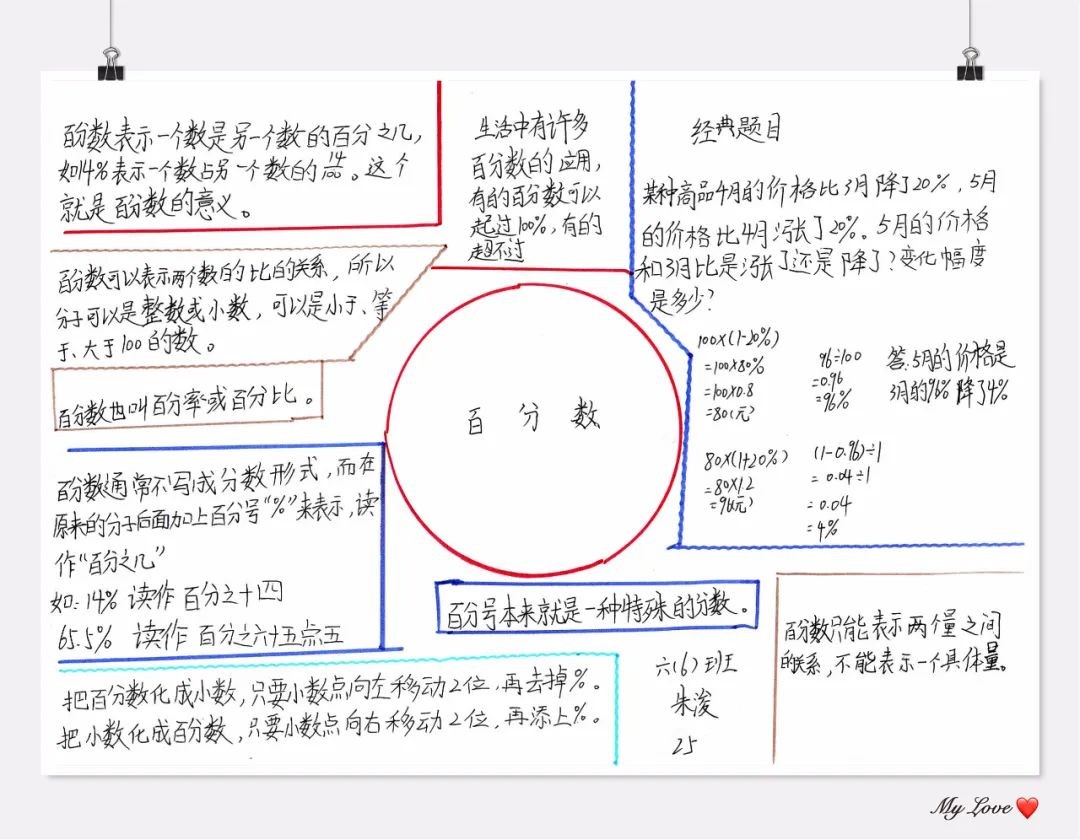 百分数表示一个数是另一个数的百分之几,
如14%表示一个数占另一个数的14/100。这个
就是百分数的意义。
生活中有许多
百分数的应用,
有的百分数可以
起过100%,有的
超不过
经典题目
某种商品4月的价格比3月降了20%,5月
的价格比4月涨了20%。5月的价格
和3月比是涨了还是降了?变化幅度
是多少?
100×(1-20%)
=100×80%
=100×0.8
=80(元)
80×(1+20%)
=80×1.2
=96(元)
96÷100
=0.96
=96%
(1-0.96)÷1
=0.04÷1
=0.04
=4%
答:5月的价格是
3月的96% 降了4%
百分数可以表示两个数的比的关系,所以
分子可以是整数或小数,可以是小于、等
于、大于100的数。
百分数也叫百分率或百分比。
百分数
百分数通常不写成分数形式,而在
原来的分子后面加上百分号“%”来表示,读
作“百分之几”
如:14% 读作 百分之十四
65.5% 读作 百分之六十五点五
百分号本来就是一种特殊的分数。
把百分数化成小数,只要小数点向左移动2位,再去掉%。
把小数化成百分数,只要小数点向右移动2位,再添上%。
六(6)班
朱浚
25
百分数只能表示两个量之间
的关系,不能表示一个具体量。
My Love